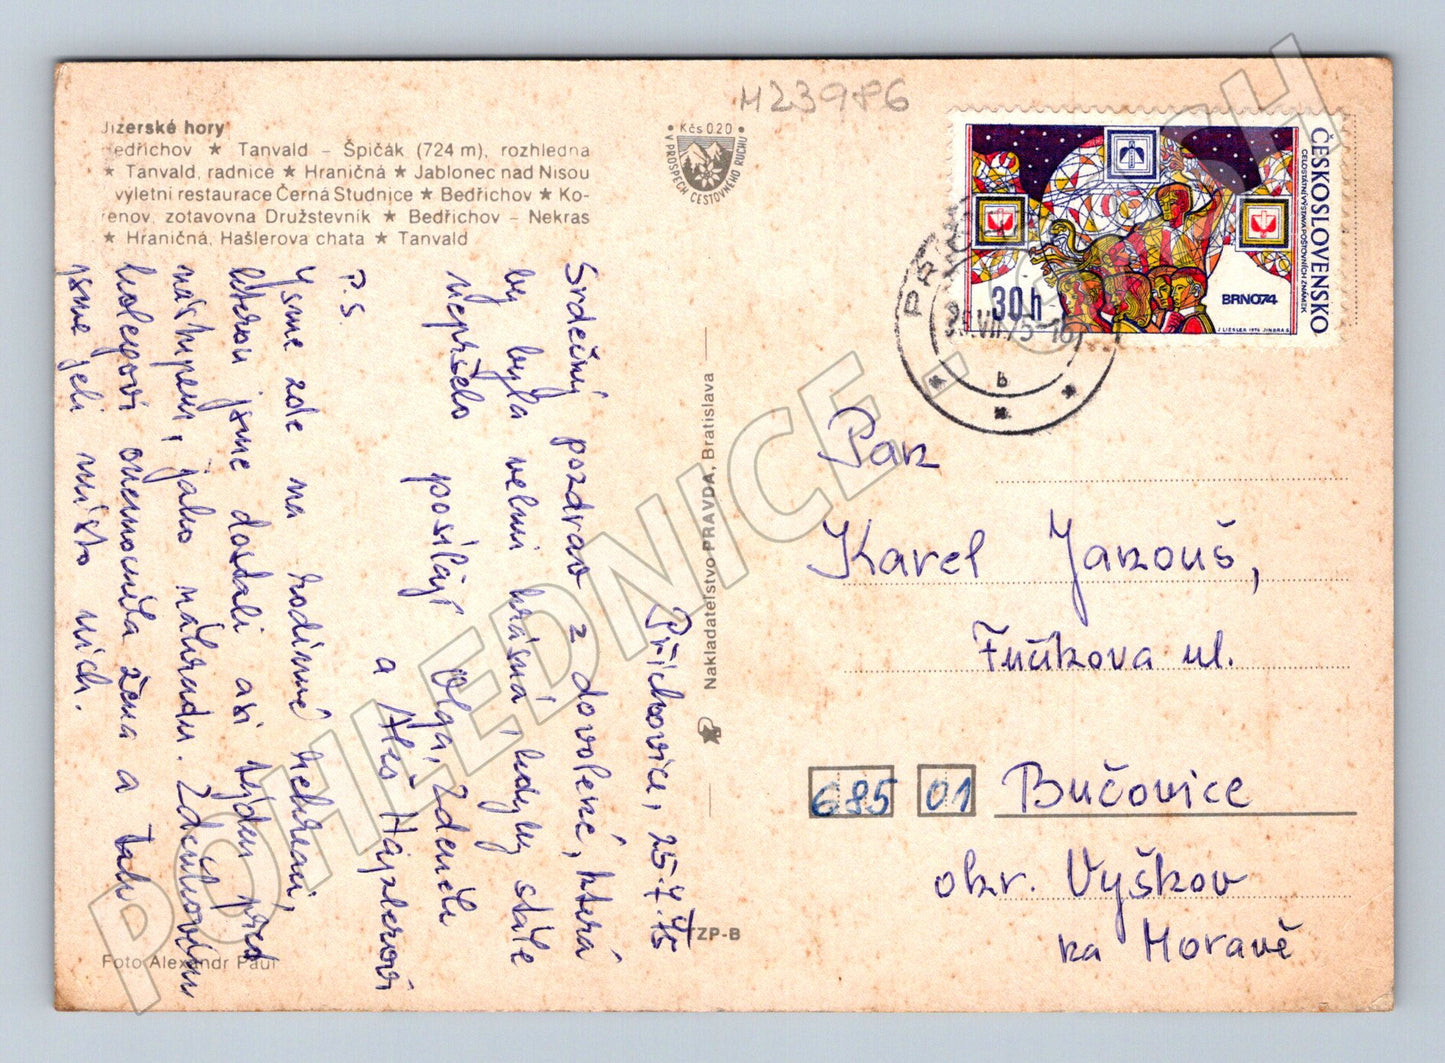 Jizerské hory
Bedřichov ★ Tanvald – Špičák (724 m), rozhledna
★ Tanvald, radnice ★ Hraničná ★ Jablonec nad Nisou
výletní restaurace Černá Studnice ★ Bedřichov ★ Ko-
řenov, zotavovna Družstevník ★ Bedřichov – Nekras
★ Hraničná, Hašlerova chata ★ Tanvald
Příchovice, 25.7.75
Srdečný pozdrav z dovolené, která
by byla velmi krásná, kdyby stále
nepršelo posílají Olga, Zdeněk
a Aleš Hájkovi
P.S.
Jsme zde na hodinné
kterou jsme dostali asi týden před
nástupem, jako náhradu. Zdeňkovému
kolegovi onemocněla žena a tak
jsme jeli místo nich.
Foto Alexandr Paul
Kčs 0.20
V PROSPECH CESTOVNÉHO RUCHU
Nakladateľstvo PRAVDA, Bratislava
TZP-B
M23986
ČESKOSLOVENSKO
CELOSTÁTNÍ VÝSTAVA POŠTOVNÍCH ZNÁMEK
BRNO74
30 h
J. LIESLER 1974 JINDRA S.
VII.75-16
b
Pan
Karel Janouš,
Fučíkova ul.
685 01 Bučovice
okr. Vyškov
na Moravě
POHLEDNICE.